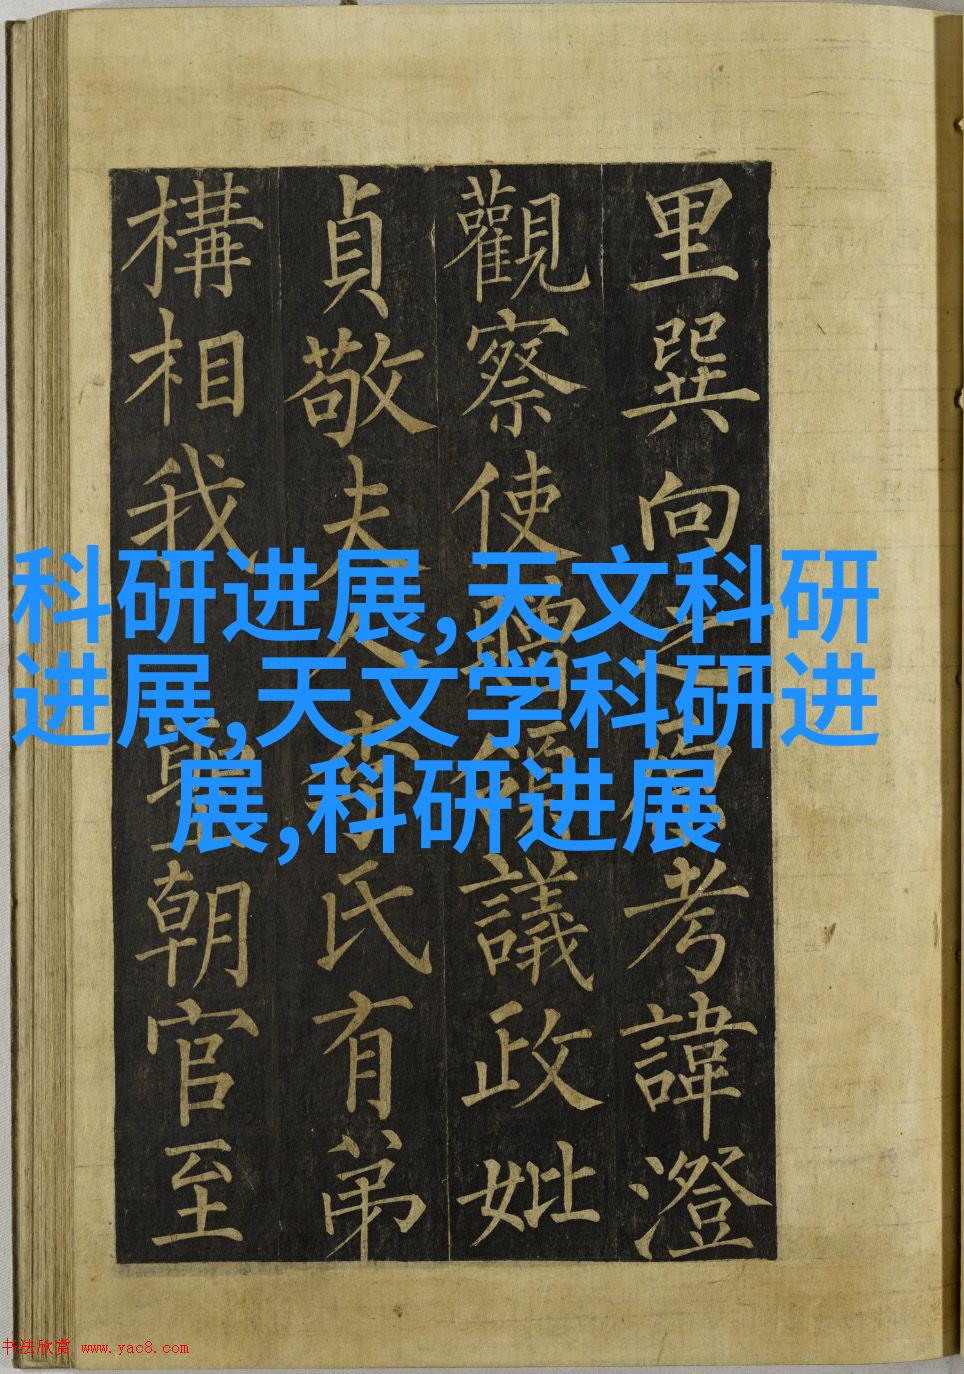 里巽向之考諱澄
觀察使領議政妣
貞敬夫人李氏有弟
構相我聖朝官至
科研进展,天文科研
进展,天文学科研进
展,科研进展
书法欣赏 www.yac8.com